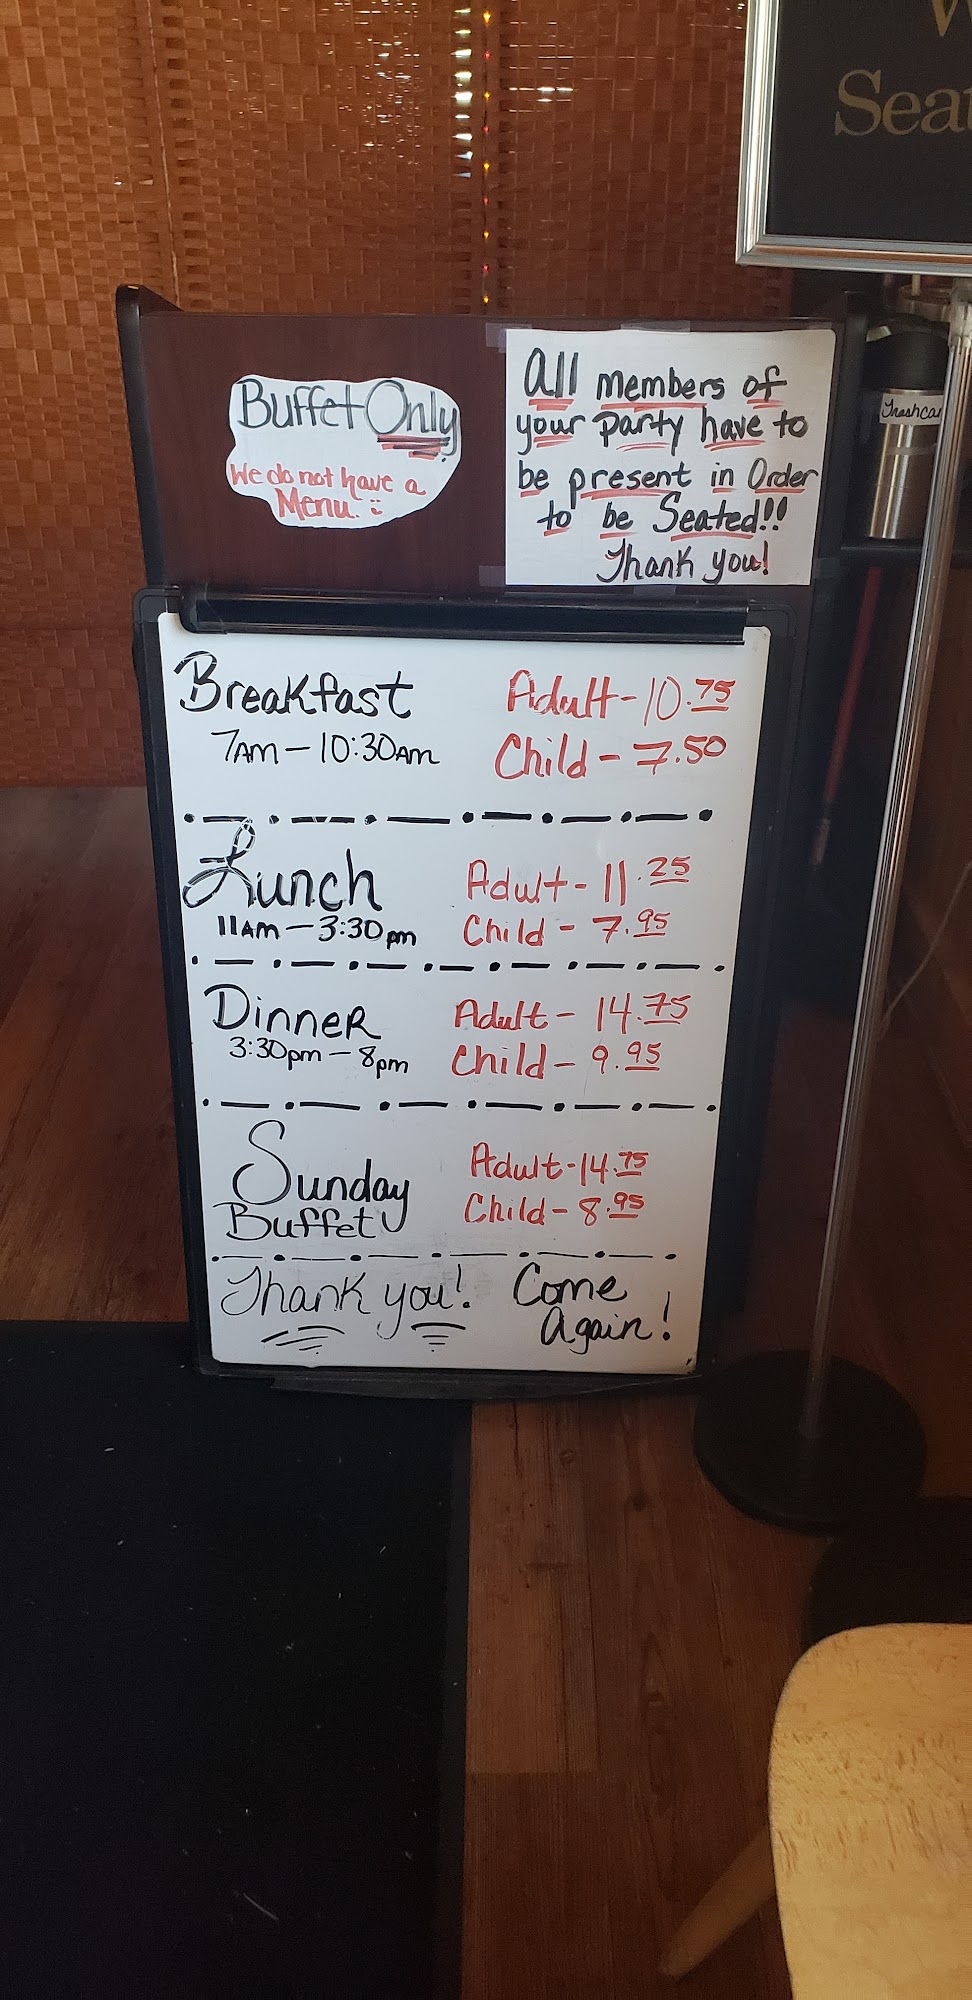 Seat
Buffet Only
We do not have a
Menu. :)
All members of
your party have to
be present in Order
to be Seated!!
Thank you!
Breakfast
7AM - 10:30AM
Adult - 10.75
Child - 7.50
Lunch
11AM - 3:30pm
Adult - 11.25
Child - 7.95
Dinner
3:30pm - 8pm
Adult - 14.75
Child - 9.95
Sunday
Buffet
Adult - 14.75
Child - 8.95
Thank you! Come
Again!